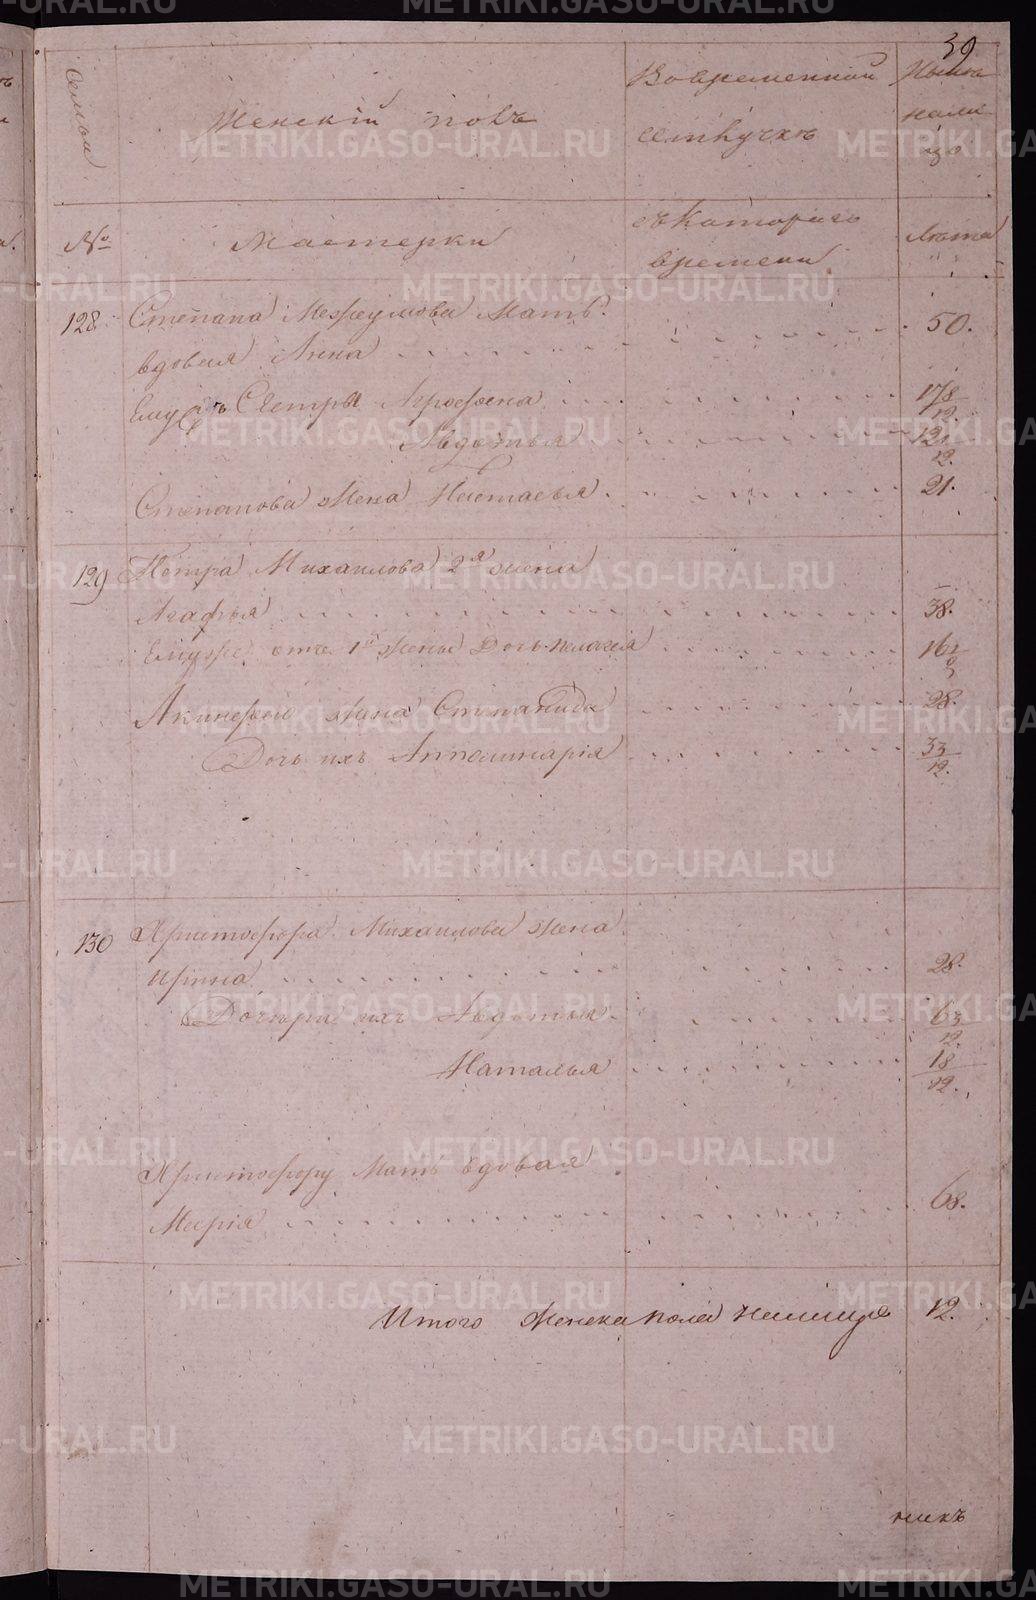 39
Семьи
Женскій полъ
Во временной
отлучкѣ
Ныне
нали
цо
№
Мастерки
съ котораго
времени
Лѣта
128
Степана Межеумова Мать
вдовая Анна 50.
Ему сестры Агрофена 17 8/12
Авдотья 12 1/12.
Степанова жена Настасья 21.
129
Петра Михаилова 2я жена
Агафья 38.
Ему же отъ 1й жены Дочь Пелагея 16 1/2
Акинфею жена Степанида 28.
Дочь ихъ Апполинарія 33/12.
130
Христофора Михаилова жена
Ирина 28.
Дочери ихъ Авдотья 6 3/12.
Наталья 18/12.
Христофору Мать вдовая
Марія 68.
Итого женска пола налицо 12.
никъ
METRIKI.GASO-URAL.RU